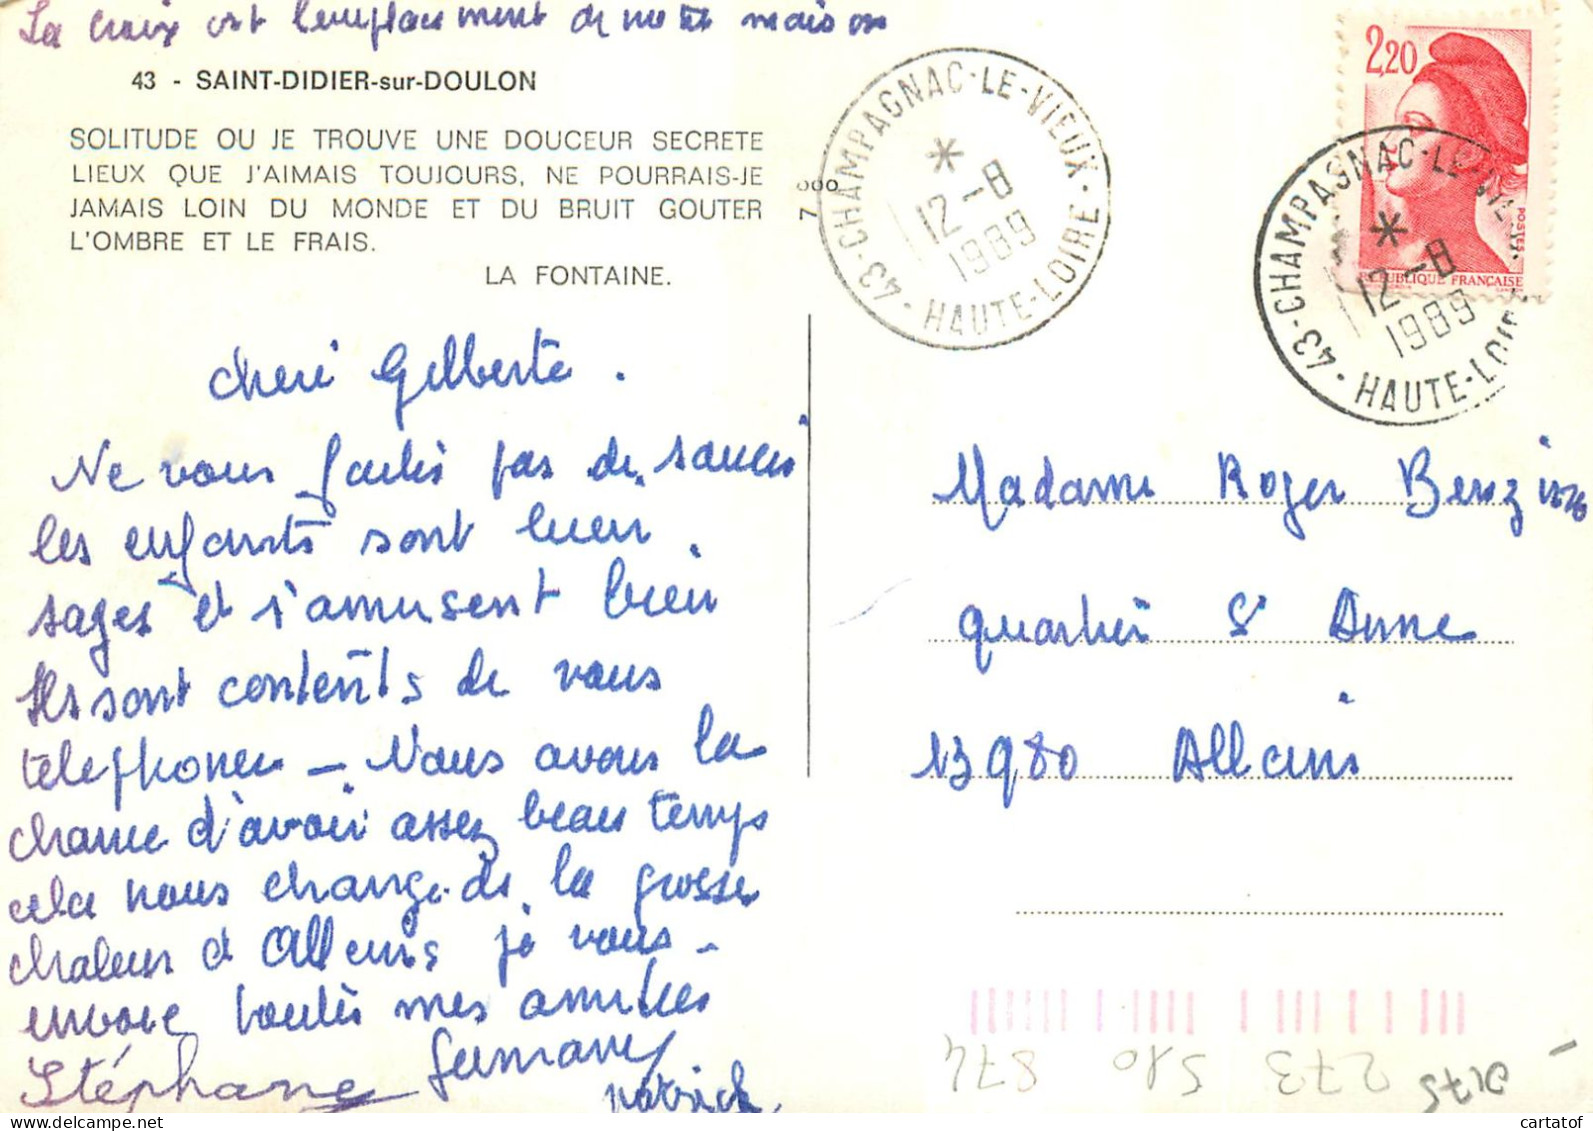 La croix est l'emplacement de notre maison
43 - SAINT-DIDIER-sur-DOULON
SOLITUDE OU JE TROUVE UNE DOUCEUR SECRETE
LIEUX QUE J'AIMAIS TOUJOURS, NE POURRAIS-JE
JAMAIS LOIN DU MONDE ET DU BRUIT GOUTER
L'OMBRE ET LE FRAIS.
LA FONTAINE.
7 000
43-CHAMPAGNAC-LE-VIEUX-HAUTE-LOIRE
12-8
1989
2,20
POSTES
REPUBLIQUE FRANCAISE
43-CHAMPAGNAC-LE-VIEUX-HAUTE-LOIRE
12-8
1989
cheré Gilberte.
Ne vous faites pas de soucis
les enfants sont bien
sages et s'amusent bien
Ils sont contents de vous
telephoner – Nous avons la
chance d'avoir assez beau temps
cela nous change de la grosse
chaleur d'Alleins je vous –
envoie toutes mes amities
Stéphane Germany
Patrick
Madame Roger
quartier St Anne
13980 Alleins
273 510 874
0175
cartatof